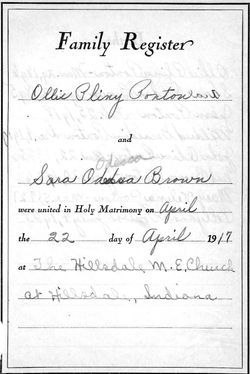 Family Register
Ollie Pliny Ponton and
and
Odessa
Sara Odessa Brown
were united in Holy Matrimony on April
the 22 day of April 1917
at The Hillsdale M.E. Church
at Hillsdale, Indiana